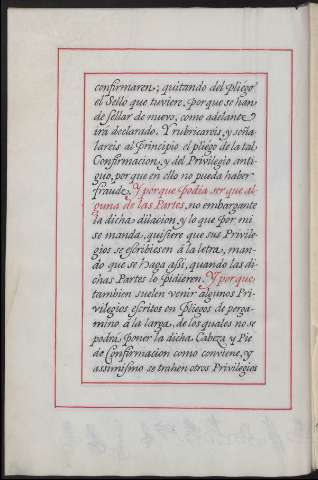 confirmaren; quitando del pliego
el Sello que tuviere, porque se han
de sellar de nuevo, como adelante
irá declarado. Y rubricareis y seña-
lareis al principio el pliego de la tal
Confirmacion, y del Privilegio anti-
guo, por que en ello no pueda haber
fraude. Y porque podia ser que al-
guna de las Partes, no embargante
la dicha dilacion, y lo que por mi
se manda, quisiere que sus Privile-
gios se escribiesen á la letra, man-
do que se haga assi, quando las di-
chas Partes lo pidieren. Y porque
tambien suelen venir algunos Pri-
vilegios escritos en pliegos de perga-
mino á la larga, de los quales no se
podra poner la dicha Cabeza y Pie
de Confirmacion como conviene, y
assimismo se trahen otros Privilegios